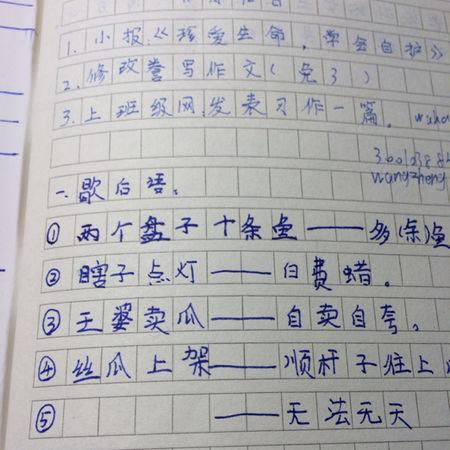 1. 小报《珍爱生命,学会自护》
2. 修改誊写作文(免3)
3. 上班级网,发表习作一篇。
wangzheng
一、歇后语:
① 两个盘子十条鱼——多(余)
② 瞎子点灯——白费蜡。
③ 王婆卖瓜——自卖自夸。
④ 丝瓜上架——顺杆子往上
⑤ ——无法无天